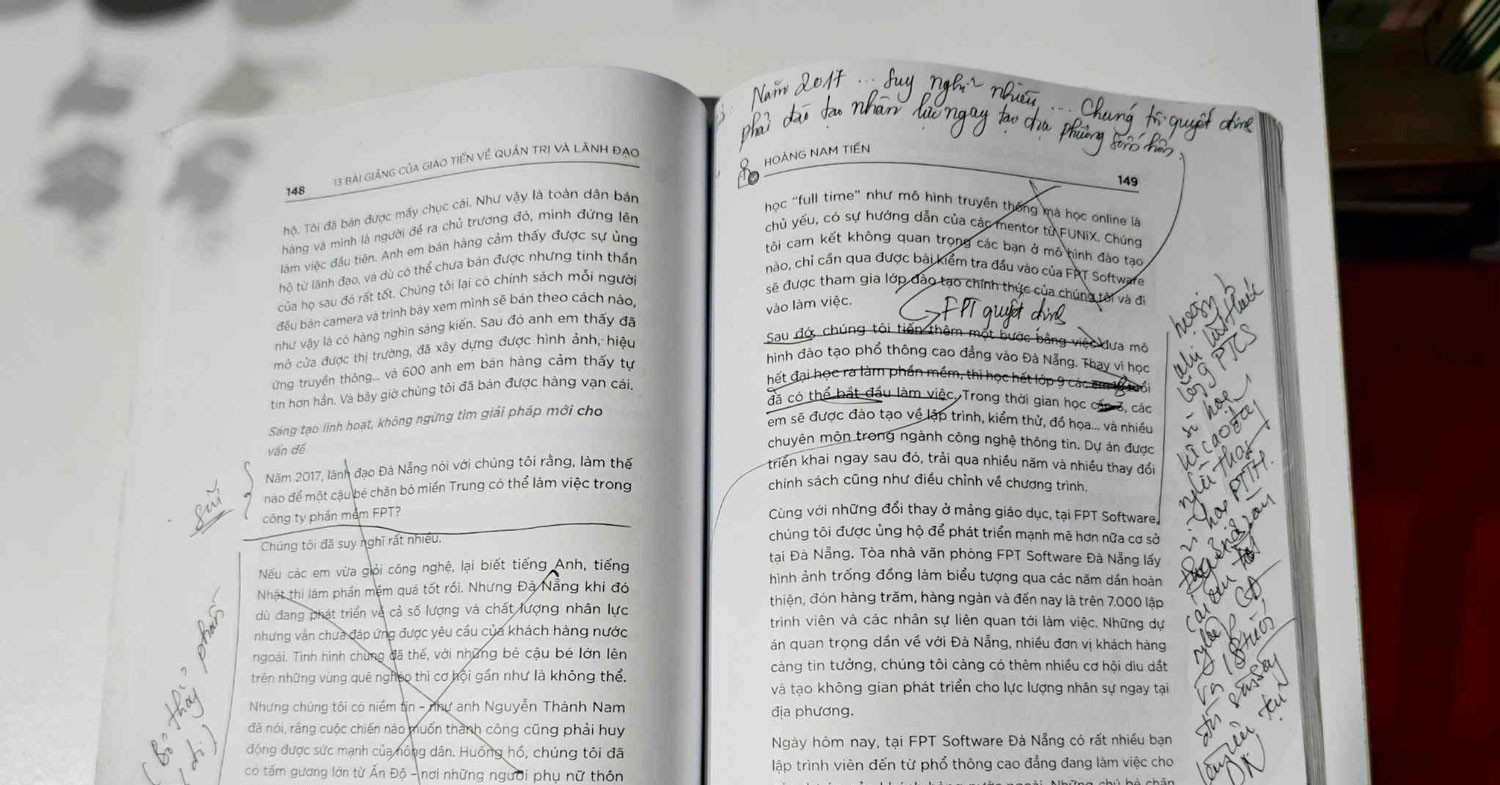 148
13 BÀI GIẢNG CỦA GIÁO TIẾN VỀ QUẢN TRỊ VÀ LÃNH ĐẠO
hộ. Tôi đã bán được mấy chục cái. Như vậy là toàn dân bán
hàng và mình là người đề ra chủ trương đó, mình đứng lên
làm việc đầu tiên. Anh em bán hàng cảm thấy được sự ủng
hộ từ lãnh đạo, và dù có thể chưa bán được nhưng tinh thần
của họ sau đó rất tốt. Chúng tôi lại có chính sách mỗi người
đều bán camera và trình bày xem mình sẽ bán theo cách nào,
như vậy là có hàng nghìn sáng kiến. Sau đó anh em thấy đã
mở cửa được thị trường, đã xây dựng được hình ảnh, hiệu
ứng truyền thông... và 600 anh em bán hàng cảm thấy tự
tin hơn hẳn. Và bây giờ chúng tôi đã bán được hàng vạn cái.
Sáng tạo linh hoạt, không ngừng tìm giải pháp mới cho
vấn đề
Năm 2017, lãnh đạo Đà Nẵng nói với chúng tôi rằng, làm thế
nào để một cậu bé chăn bò miền Trung có thể làm việc trong
công ty phần mềm FPT?
Chúng tôi đã suy nghĩ rất nhiều.
Nếu các em vừa giỏi công nghệ, lại biết tiếng Anh, tiếng
Nhật thì làm phần mềm quá tốt rồi. Nhưng Đà Nẵng khi đó
dù đang phát triển về cả số lượng và chất lượng nhân lực
nhưng vẫn chưa đáp ứng được yêu cầu của khách hàng nước
ngoài. Tình hình chung đã thế, với những bé cậu bé lớn lên
trên những vùng quê nghèo thì cơ hội gần như là không thể.
Nhưng chúng tôi có niềm tin – như anh Nguyễn Thành Nam
đã nói, rằng cuộc chiến nào muốn thành công cũng phải huy
động được sức mạnh của nông dân. Huống hồ, chúng tôi đã
có tấm gương lớn từ Ấn Độ – nơi những người phụ nữ thôn
(Bỏ
đi)
Năm 2017 ... suy nghĩ nhiều ... Chúng tôi quyết định
phải đào tạo nhân lực ngay tại địa phương
HOÀNG NAM TIẾN
149
học "full time" như mô hình truyền thống mà học online là
chủ yếu, có sự hướng dẫn của các mentor từ FUNiX. Chúng
tôi cam kết không quan trọng các bạn ở mô hình đào tạo
nào, chỉ cần qua được bài kiểm tra đầu vào của FPT Software
sẽ được tham gia lớp đào tạo chính thức của chúng tôi và đi
vào làm việc.
FPT quyết định
Sau đó, chúng tôi tiến thêm một bước bằng việc đưa mô
hình đào tạo phổ thông cao đẳng vào Đà Nẵng. Thay vì học
hết đại học ra làm phần mềm, thì học hết lớp 9 các em
đã có thể bắt đầu làm việc. Trong thời gian học cấp 3, các
em sẽ được đào tạo về lập trình, kiểm thử, đồ họa... và nhiều
chuyên môn trong ngành công nghệ thông tin. Dự án được
triển khai ngay sau đó, trải qua nhiều năm và nhiều thay đổi
chính sách cũng như điều chỉnh về chương trình.
Cùng với những đổi thay ở mảng giáo dục, tại FPT Software,
chúng tôi được ủng hộ để phát triển mạnh mẽ hơn nữa cơ sở
tại Đà Nẵng. Tòa nhà văn phòng FPT Software Đà Nẵng lấy
hình ảnh trống đồng làm biểu tượng qua các năm dần hoàn
thiện, đón hàng trăm, hàng ngàn và đến nay là trên 7.000 lập
trình viên và các nhân sự liên quan tới làm việc. Những dự
án quan trọng dần về với Đà Nẵng, nhiều đơn vị khách hàng
càng tin tưởng, chúng tôi càng có thêm nhiều cơ hội dìu dắt
và tạo không gian phát triển cho lực lượng nhân sự ngay tại
địa phương.
Ngày hôm nay, tại FPT Software Đà Nẵng có rất nhiều bạn
lập trình viên đến từ phổ thông cao đẳng đang làm việc cho